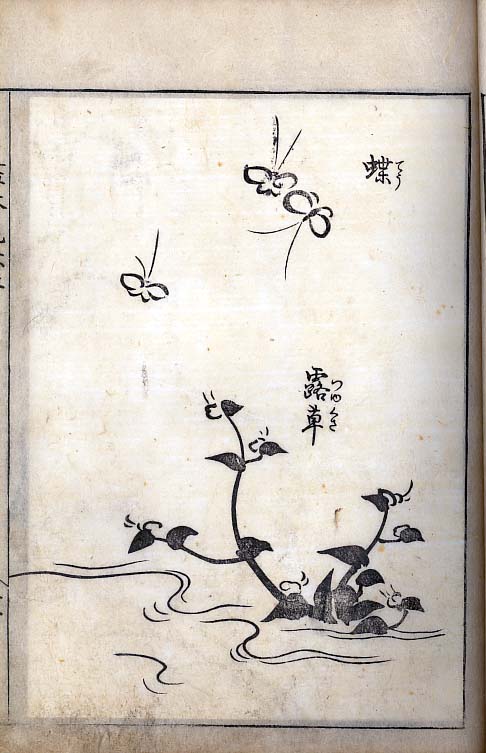 蝶
てう
露草
つゆくさ